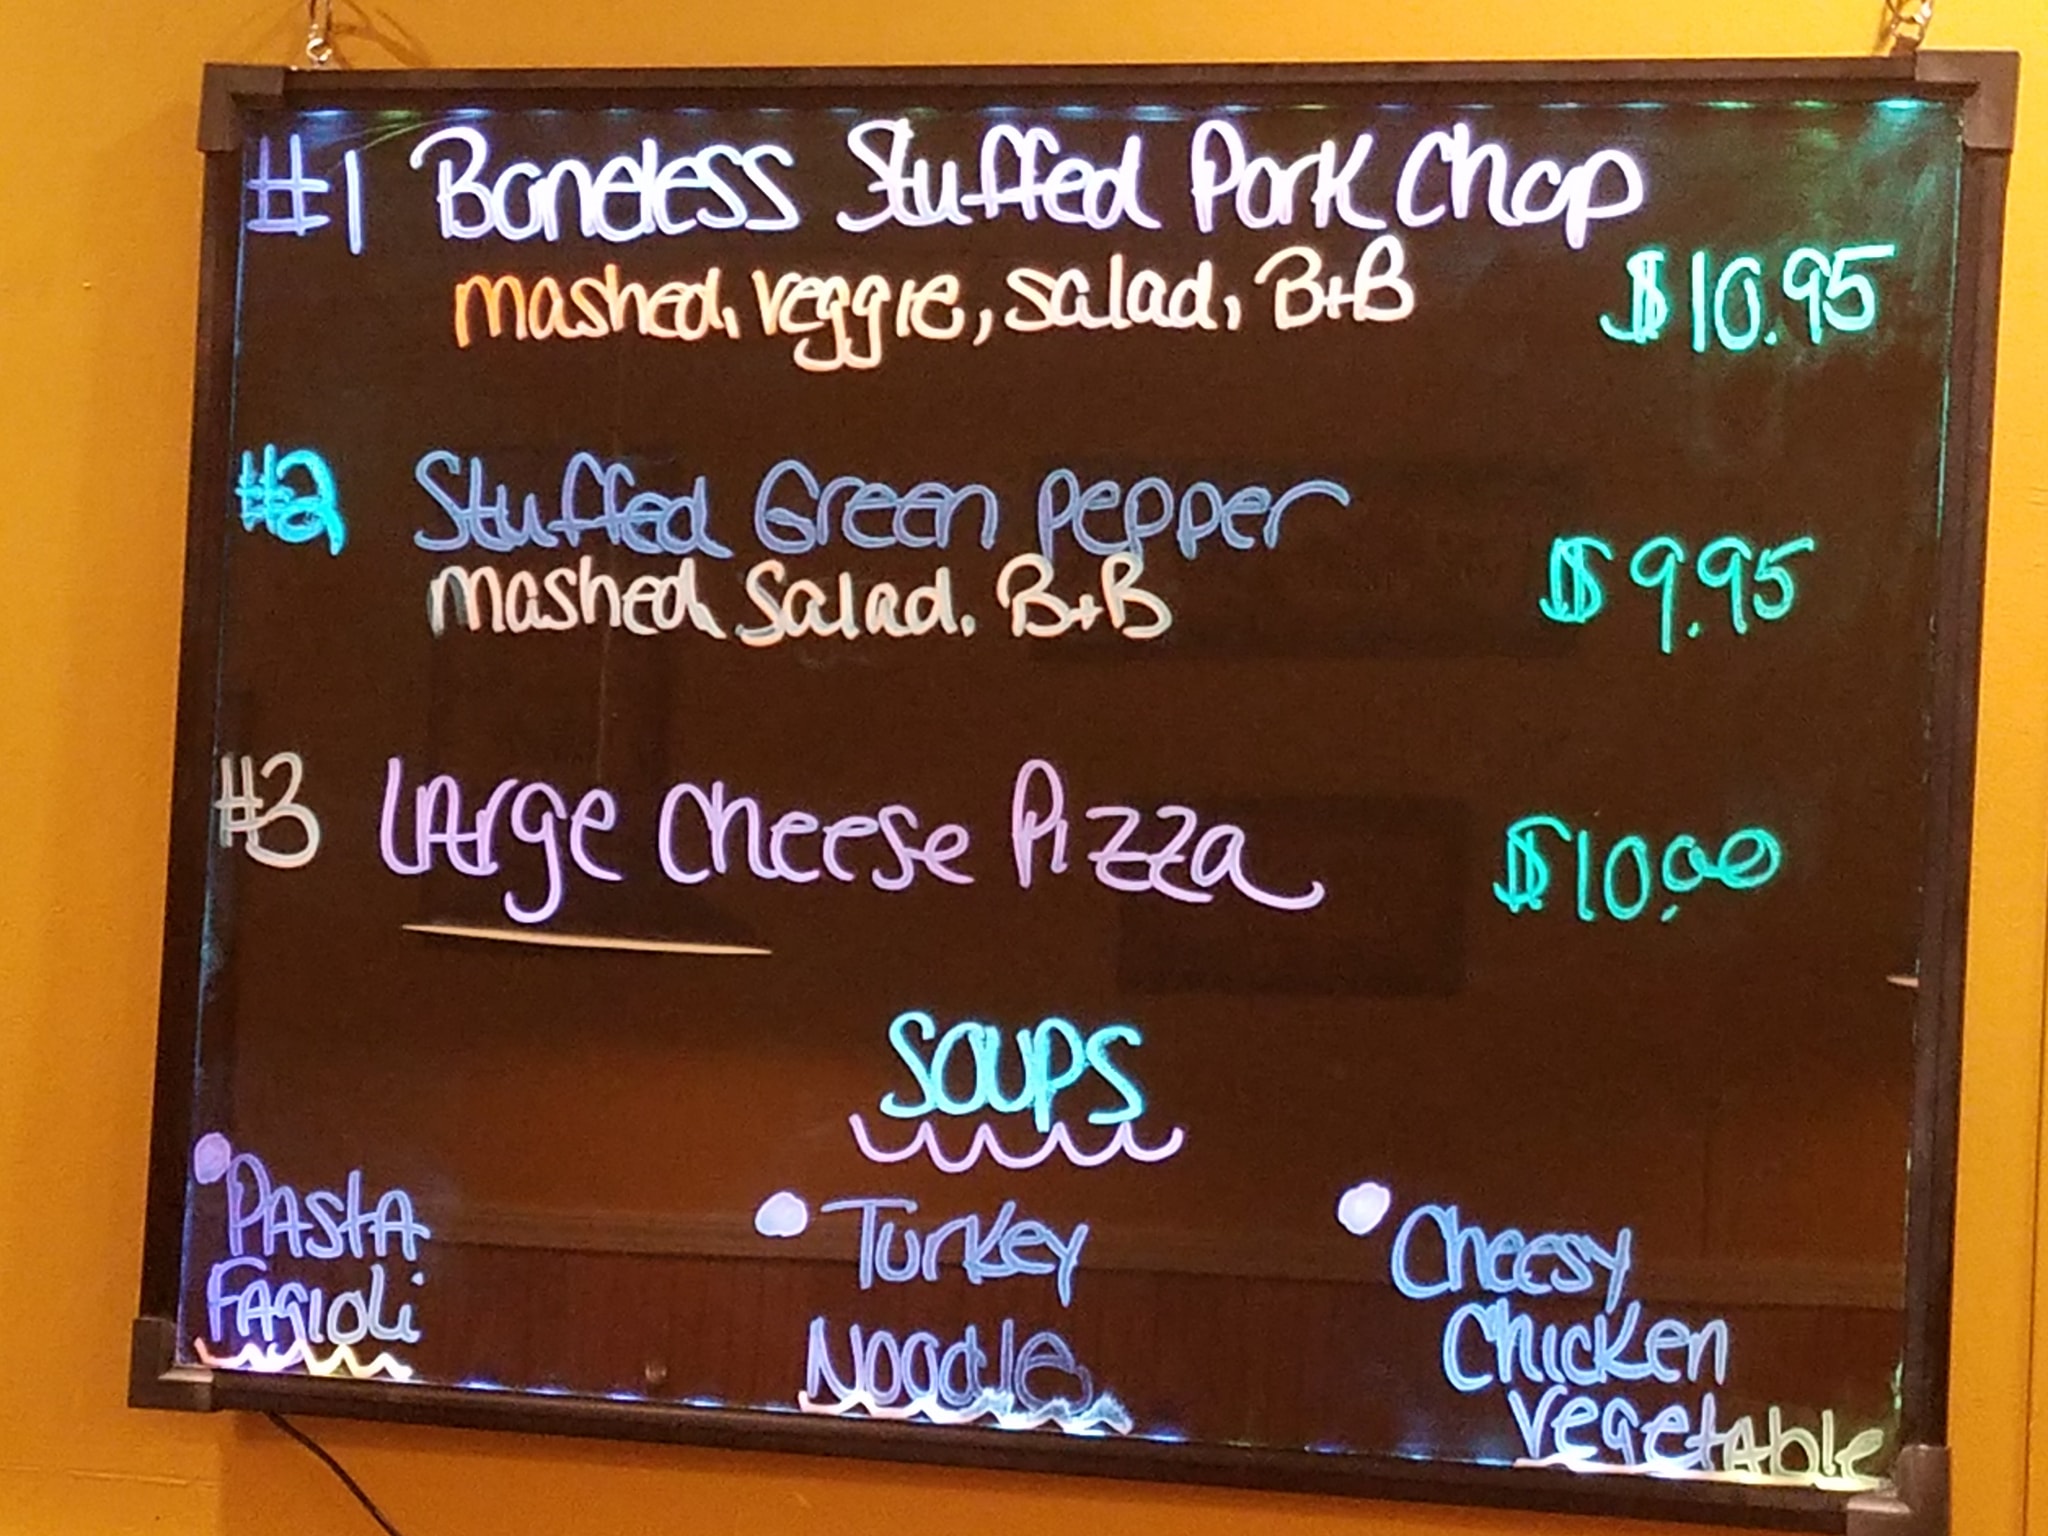 #1 Boneless Stuffed Pork Chop
mashed, veggie, salad, B+B $10.95
#2 Stuffed Green Pepper
mashed, Salad, B+B $9.95
#3 LArge Cheese Pizza $10.00
SOUPS
PAStA
FAgioli
Turkey
Noodle
Cheesy
Chicken
VegetAble